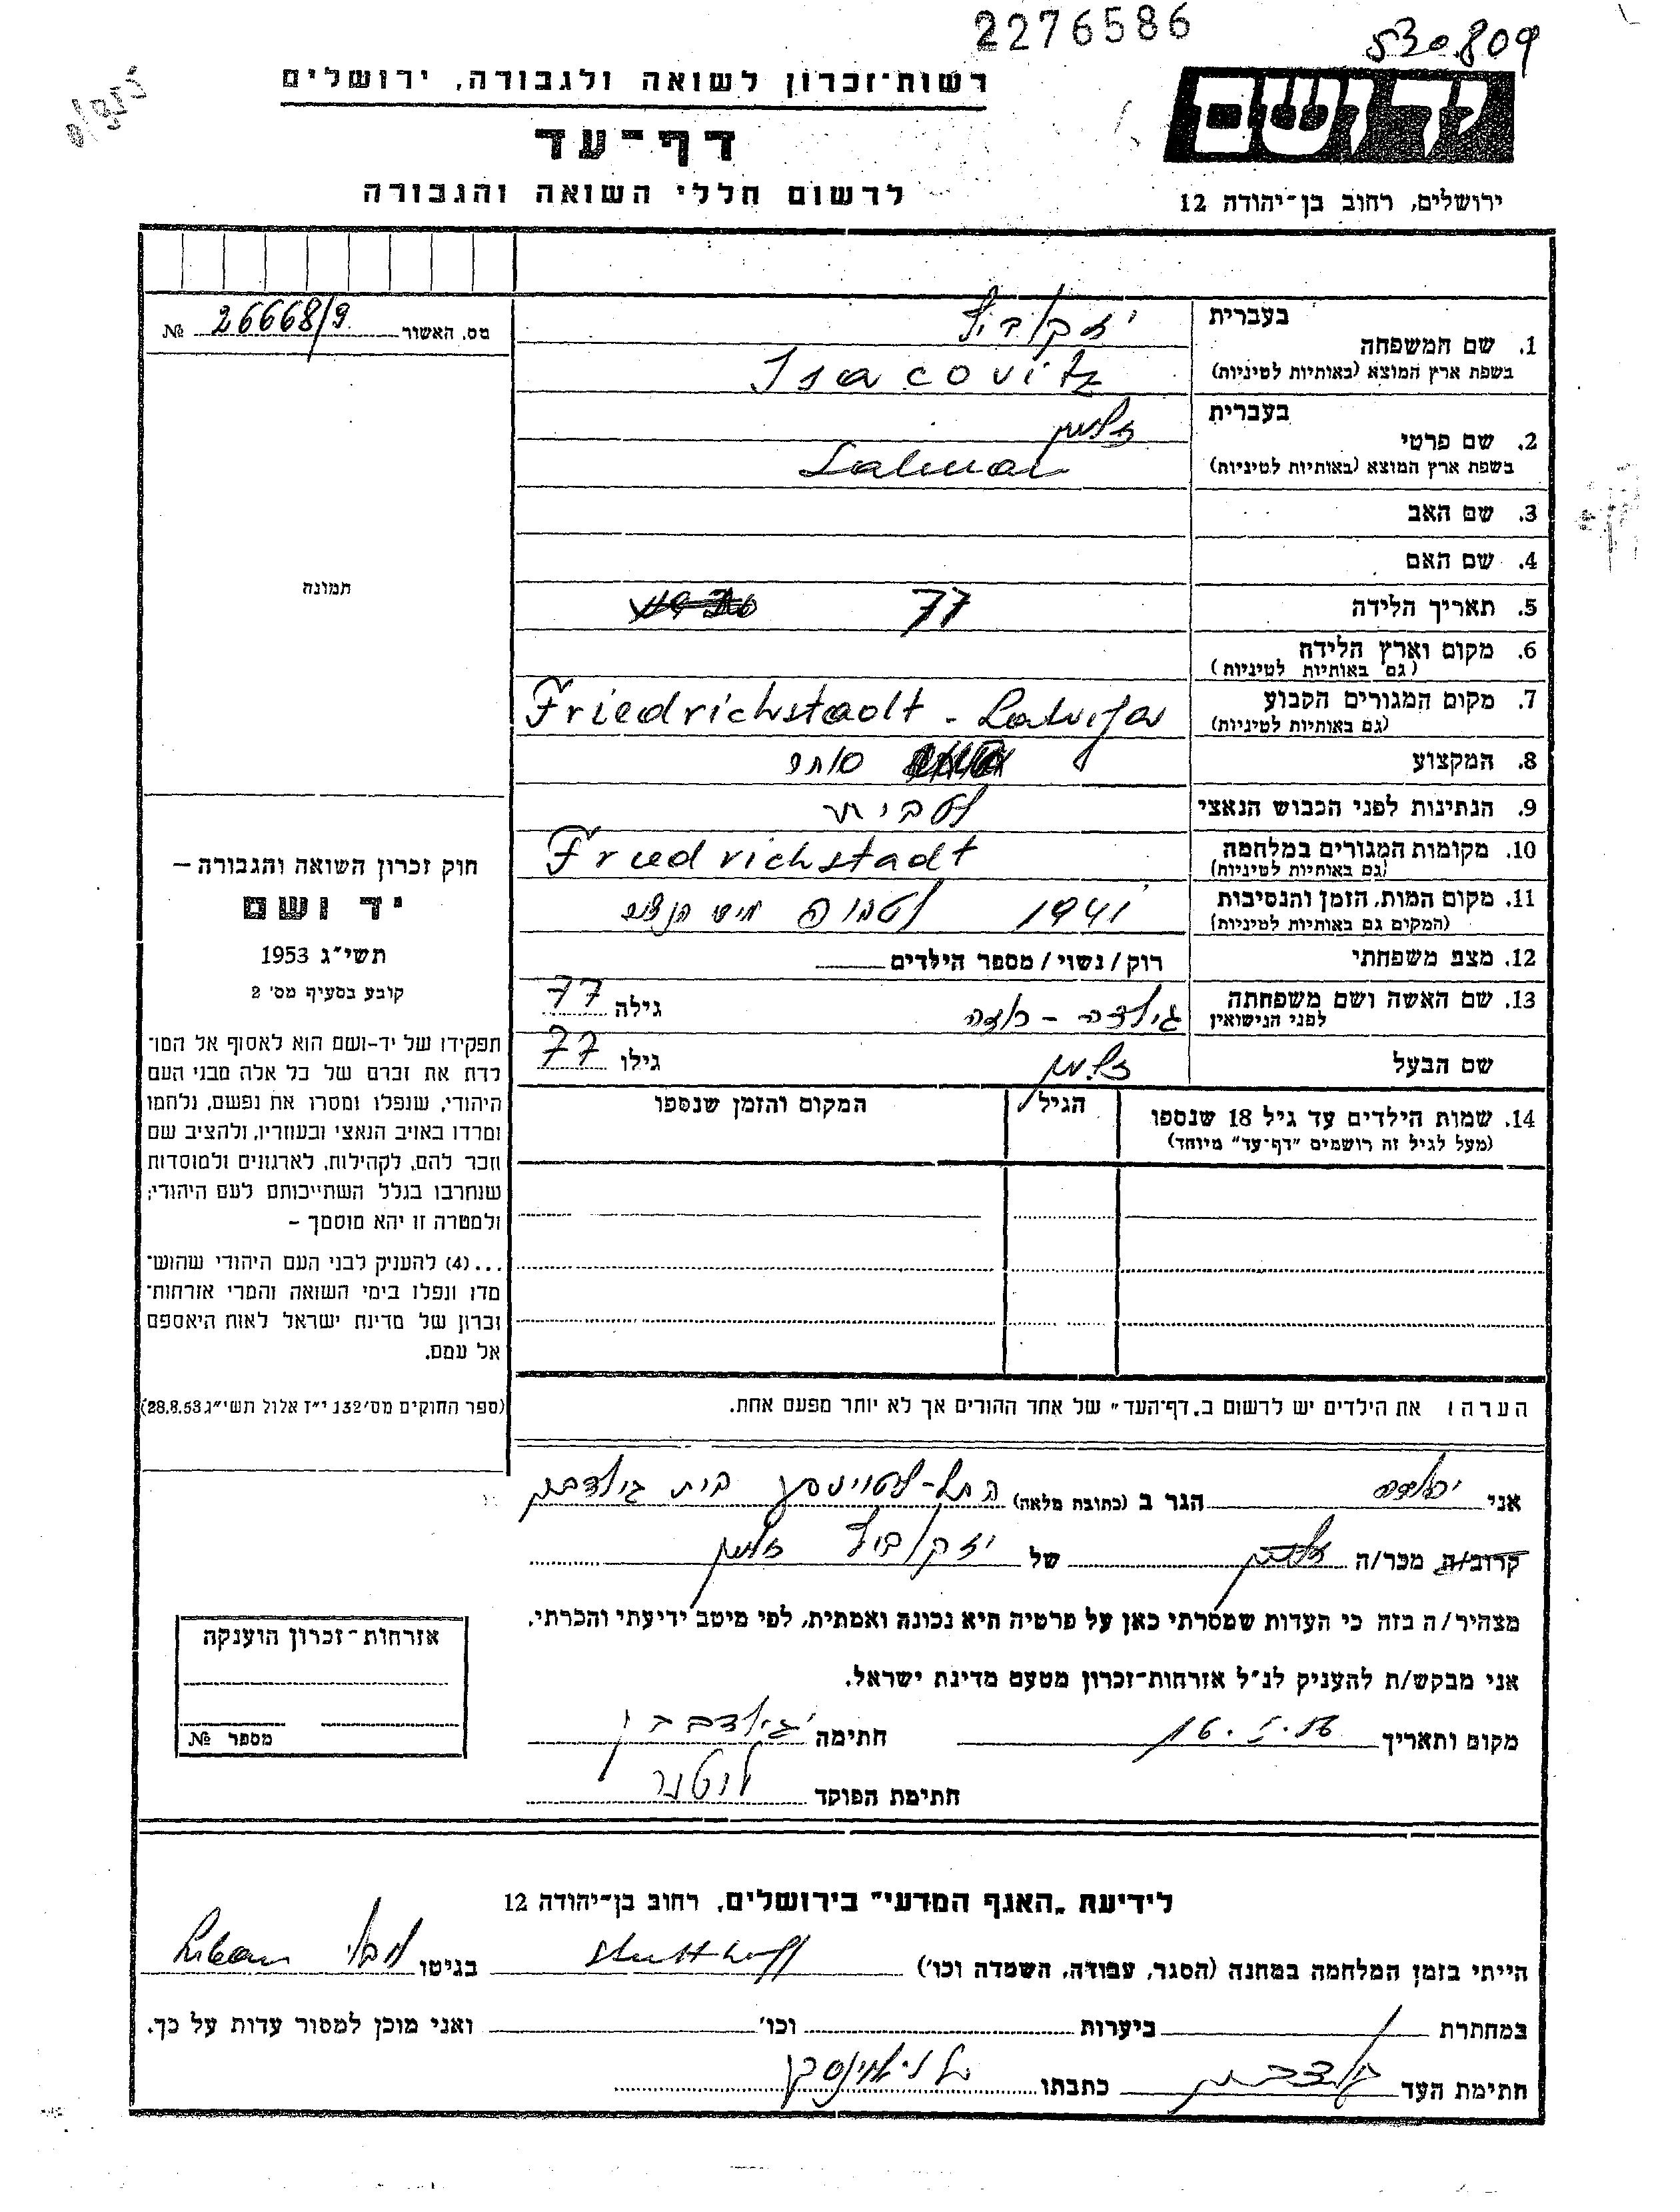 2276586
530.809
רשות־זכרון לשואה ולגבורה, ירושלים
יד ושם
דף־עד
לרשום חללי השואה והגבורה
ירושלים, רחוב בן־יהודה 12
מס. האשור 26668/9 №
1. שם המשפחה בעברית
(באותיות לטיניות) בשפת ארץ המוצא Isacovitz
2. שם פרטי בעברית זלמן
(באותיות לטיניות) בשפת ארץ המוצא Salman
3. שם האב
4. שם האם
5. תאריך הלידה 77
6. מקום וארץ הלידה
(גם באותיות לטיניות)
7. מקום המגורים הקבוע Friedrichstadt - Latvija
(גם באותיות לטיניות)
8. המקצוע סוחר
9. הנתינות לפני הכבוש הנאצי לטבית
10. מקומות המגורים במלחמה Friedrichstadt
(גם באותיות לטיניות)
11. מקום המות, הזמן והנסיבות 1941 לטביה
(המקום גם באותיות לטיניות)
12. מצב משפחתי רוק/נשוי/מספר הילדים
13. שם האשה ושם משפחתה גילה 77
לפני הנישואין
שם הבעל זלמן גילו 77
14. שמות הילדים עד גיל 18 שנספו הגיל המקום והזמן שנספו
(מעל לגיל זה רושמים "דף־עד" מיוחד)
הערה: את הילדים יש לרשום ב„דף־העד" של אחד ההורים אך לא יותר מפעם אחת.
תמונה
חוק זכרון השואה והגבורה –
יד ושם
תשי"ג 1953
קובע בסעיף מס' 2
תפקידו של יד–ושם הוא לאסוף אל המו־
לדת את זכרם של כל אלה מבני העם
היהודי, שנפלו ומסרו את נפשם, נלחמו
ומרדו באויב הנאצי ובעוזריו, ולהציב שם
וזכר להם, לקהילות, לארגונים ולמוסדות
שנחרבו בגלל השתייכותם לעם היהודי;
ולמטרה זו יהא מוסמך –
...(4) להעניק לבני העם היהודי שהוש־
מדו ונפלו בימי השואה והמרי אזרחות־
זכרון של מדינת ישראל לאות היאספם
אל עמם.
(ספר החוקים מס' 132 י"ז אלול תשי"ג 28.8.53)
אני הגר ב (כתובת מלאה) בית
קרוב/ה מכר/ה של זלמן
מצהיר/ה בזה כי העדות שמסרתי כאן על פרטיה היא נכונה ואמתית, לפי מיטב ידיעתי והכרתי.
אני מבקש/ת להעניק לנ"ל אזרחות־זכרון מטעם מדינת ישראל.
מקום ותאריך חתימה
חתימת הפוקד
אזרחות־זכרון הוענקה
מספר №
לידיעת „האגף המדעי" בירושלים, רחוב בן־יהודה 12
הייתי בזמן המלחמה במחנה (הסגר, עבודה, השמדה וכו') Stutthoff בגיטו Libau
במחתרת ביערות וכו' ואני מוכן למסור עדות על כך.
חתימת העד כתבתו